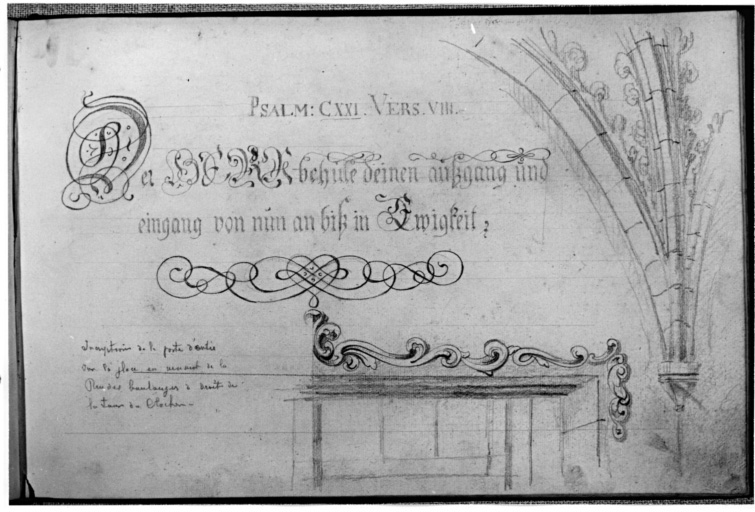 PSALM: CXXI. VERS. VIII.
Der HERR behüte deinen außgang und
eingang von nun an biß in Ewigkeit
Inscription de la porte d'entrée
sur la place en venant de la
Rue des boulangers à droite de
la Tour du Clocher